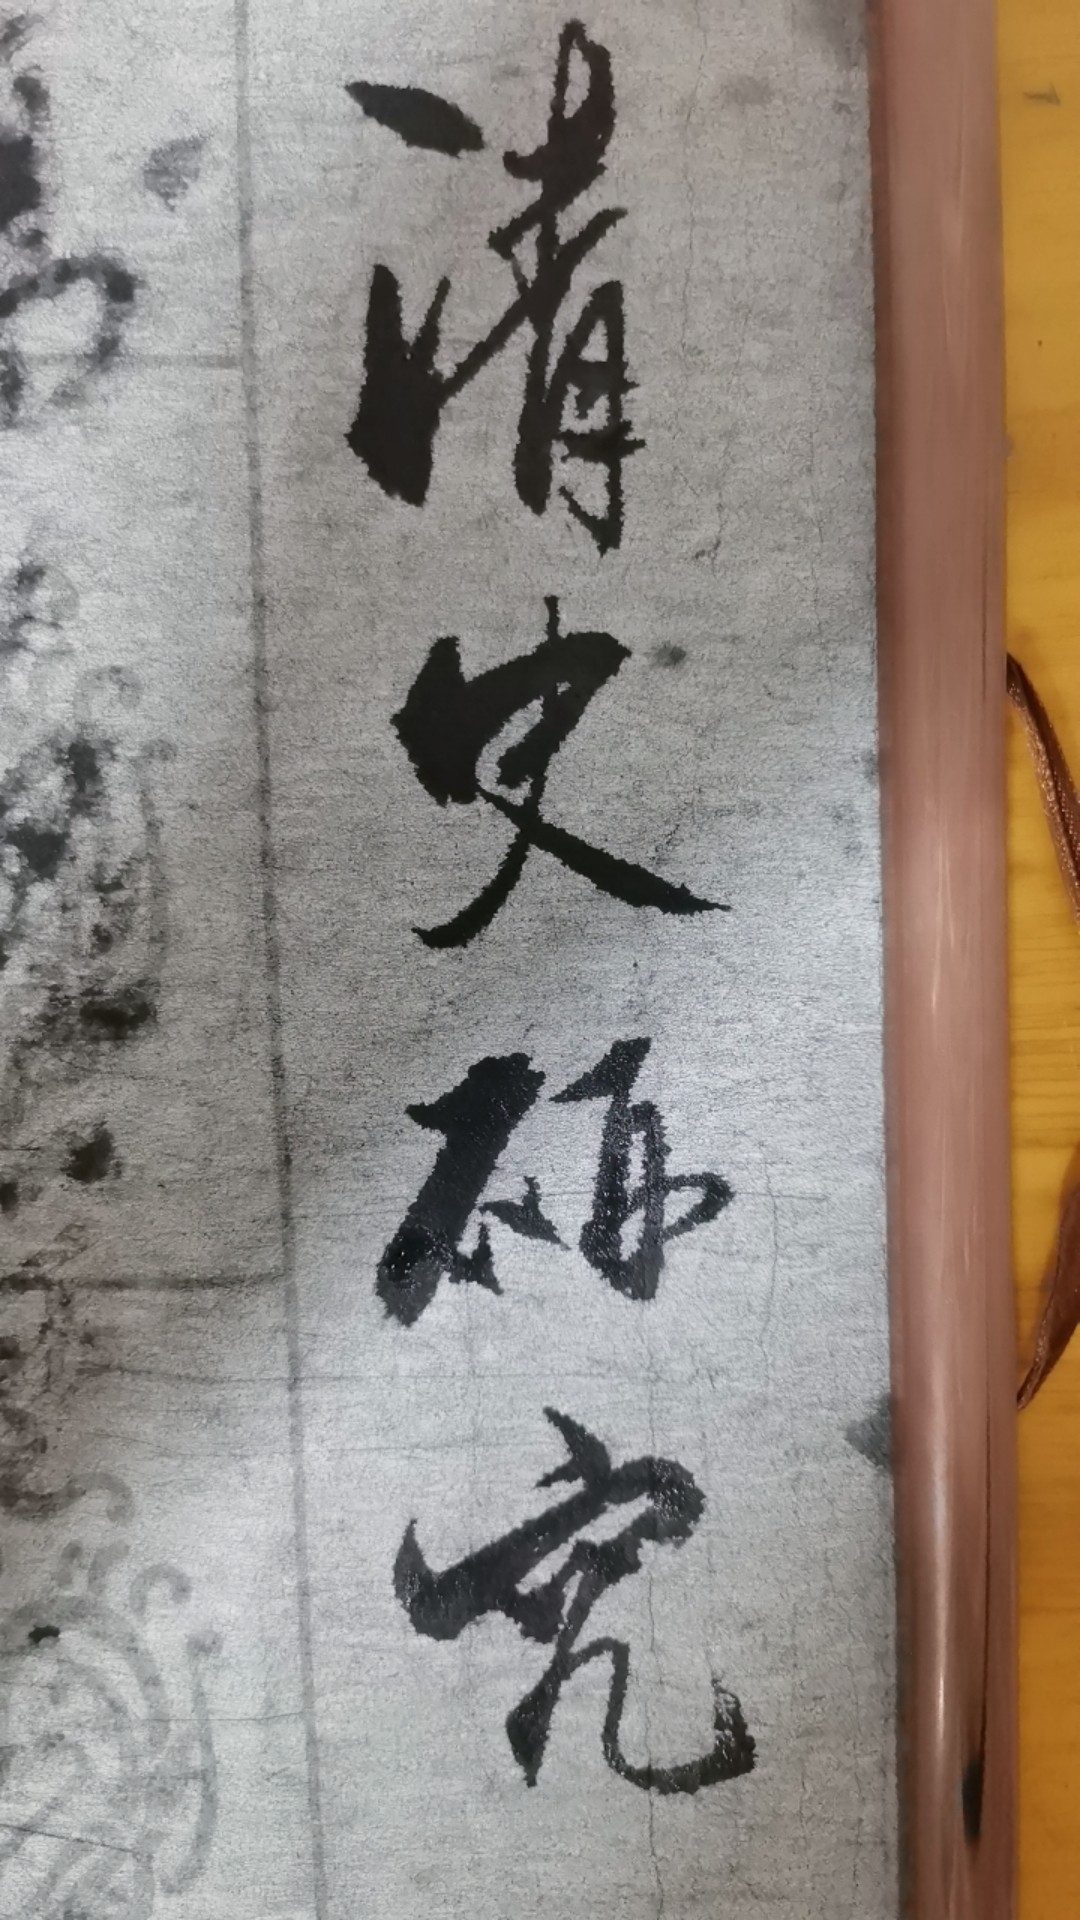 清史研究